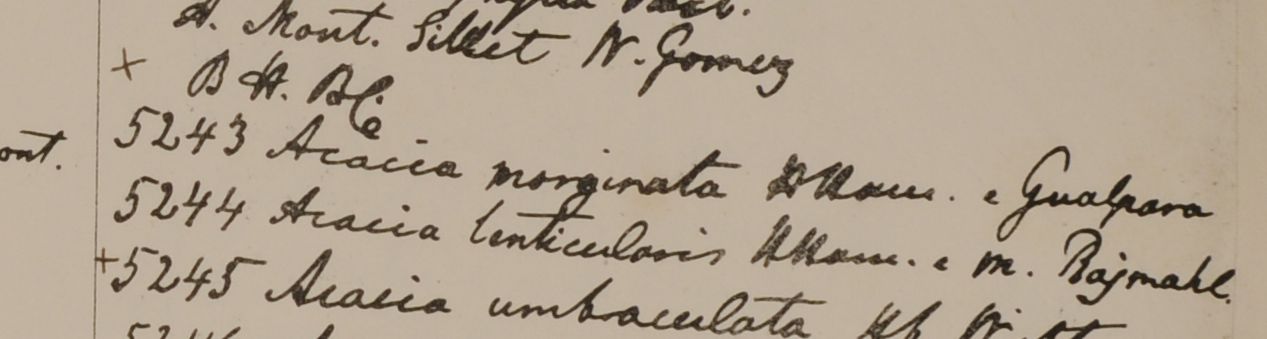 A. Mont. Sillet W. Gomez
B H. BC
ont.
5243 Acacia marginata HHam. e Gualpara
5244 Acacia lenticularis HHam. e m. Rajmahl.
+5245 Acacia umbraculata Hb